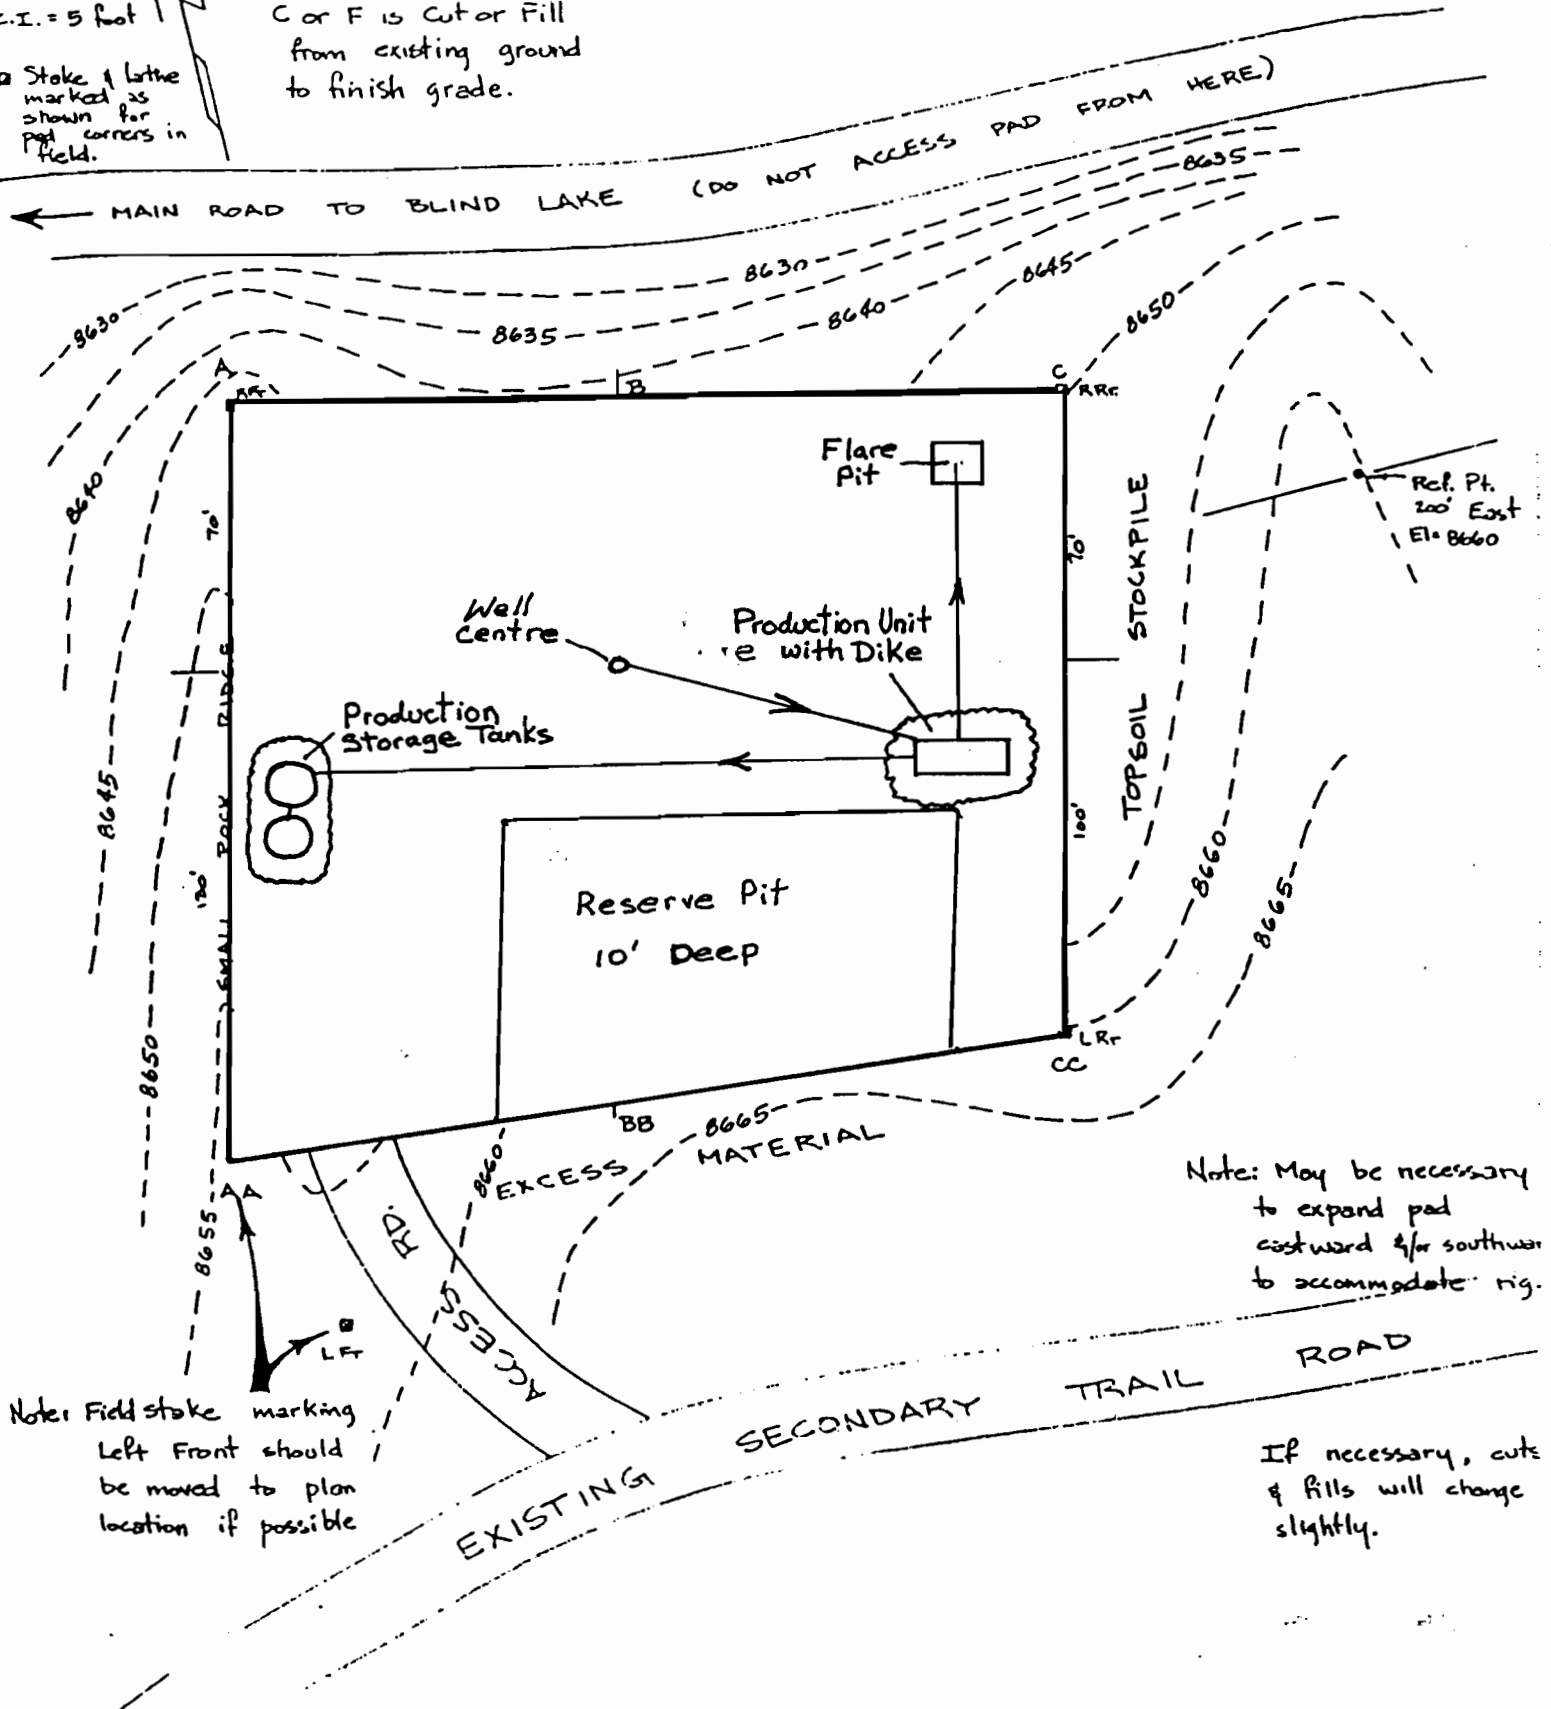 C.I. = 5 foot
Stake & lathe
marked as
shown for
pad corners in
field.
C or F is Cut or Fill
from existing ground
to finish grade.
MAIN ROAD TO BLIND LAKE (DO NOT ACCESS PAD FROM HERE)
8635
8630
8645
8630
8635
8640
8650
A
B
C
RRr
Flare
Pit
8640
70'
70'
Ref. Pt.
200' East
El= 8660
TOPSOIL STOCKPILE
Well
Centre
Production Unit
e with Dike
Production
Storage Tanks
SMALL ROCK RIDGE
8645
100'
8660
8665
Reserve Pit
10' Deep
8650
LRr
CC
BB
8665
8660
EXCESS MATERIAL
AA
8655
ACCESS RD.
LFr
Note: May be necessary
to expand pad
eastward &/or southwar
to accommodate rig.
Note: Field stake marking
Left Front should
be moved to plan
location if possible
EXISTING SECONDARY TRAIL ROAD
If necessary, cuts
& fills will change
slightly.